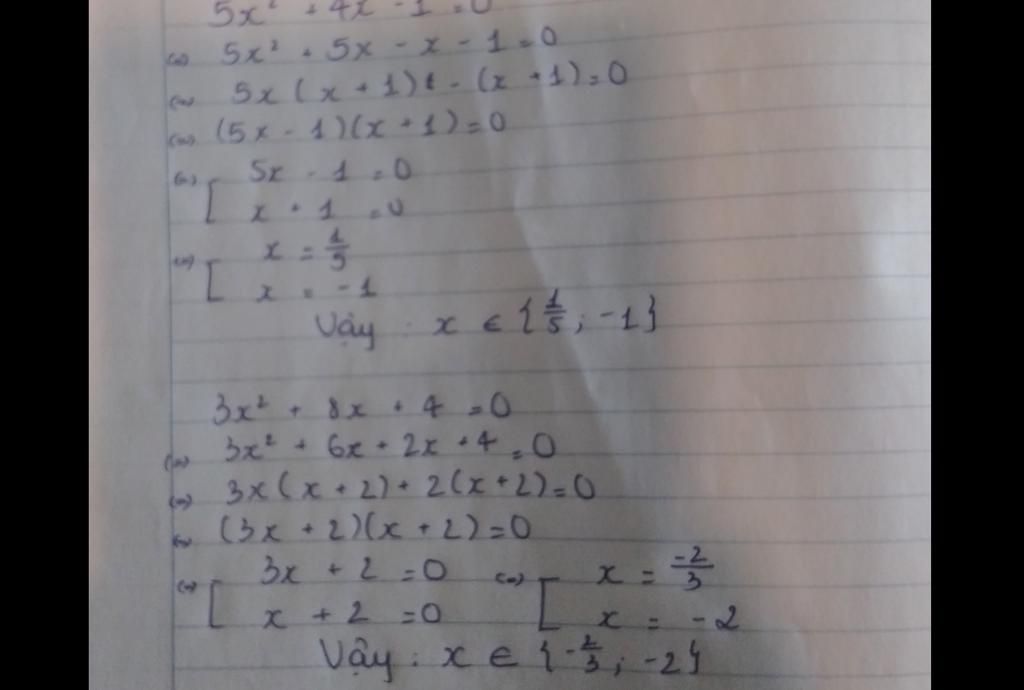 5x² + 4x - 1 = 0
⇔ 5x² + 5x - x - 1 = 0
⇔ 5x(x + 1) - (x + 1) = 0
⇔ (5x - 1)(x + 1) = 0
⇔ [ 5x - 1 = 0
x + 1 = 0
⇔ [ x = 1/5
x = -1
Vậy : x ∈ {1/5 ; -1}
3x² + 8x + 4 = 0
⇔ 3x² + 6x + 2x + 4 = 0
⇔ 3x(x + 2) + 2(x + 2) = 0
⇔ (3x + 2)(x + 2) = 0
⇔ [ 3x + 2 = 0 ⇔ [ x = -2/3
x + 2 = 0 x = -2
Vậy : x ∈ {-2/3 ; -2}